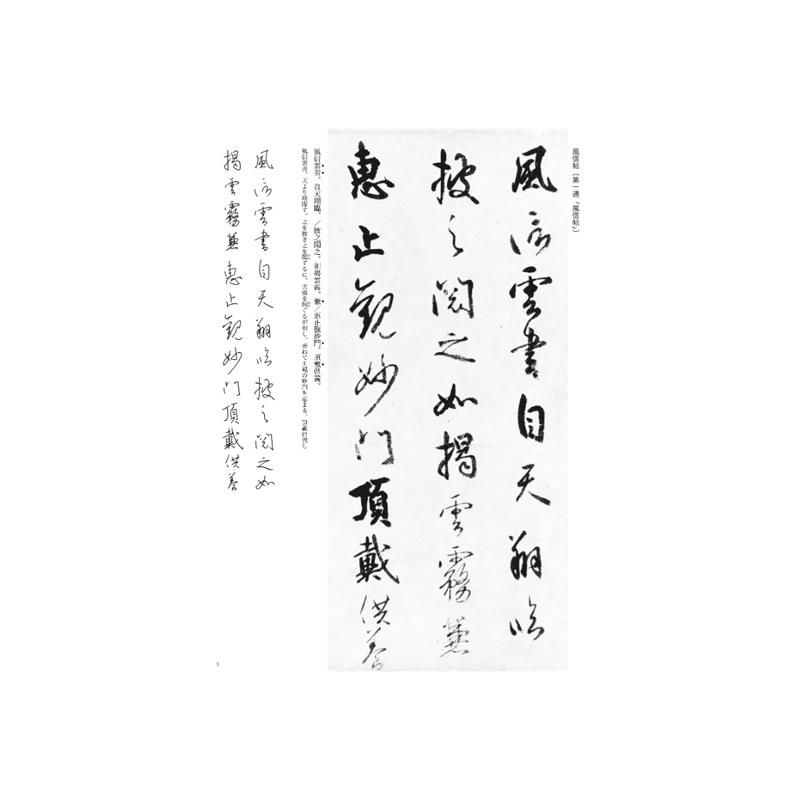 風信帖(第一通「風信帖」)
風信雲書自天翔臨
披之閲之如揭雲霧兼
恵止觀妙門頂戴供養
風信雲書、自天翔臨。/披之閲之、如揭雲霧。兼/恵止觀妙門。頂戴供養、
風信雲書、天より翔臨す。之を披き之を閲するに、雲霧を掲ぐるが如し。兼ねて止観の妙門を恵まる。頂戴供養し
風信雲書自天翔臨披之閲之如
揭雲霧兼恵止觀妙門頂戴供養